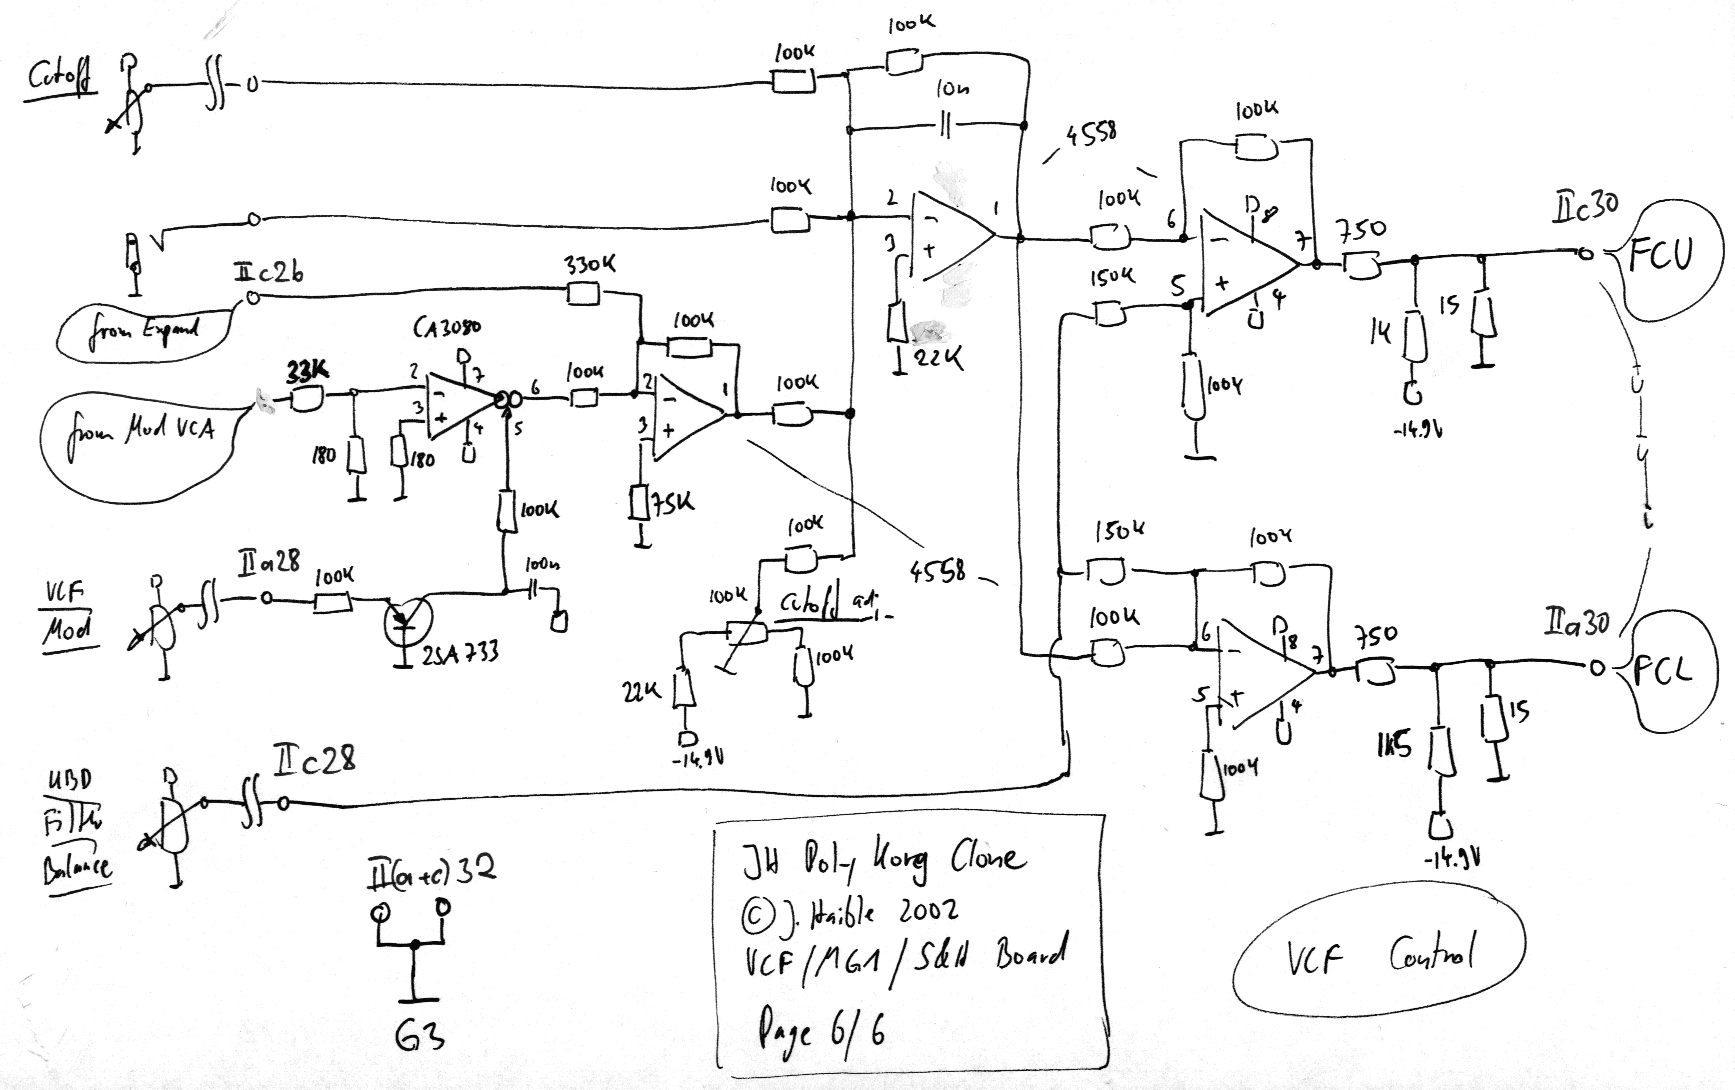 Cutoff
100K
100K
10n
4558
100K
100K
2
3
1
22K
100K
6
5
8
7
4
750
IIc30
FCU
150K
100K
1K
15
-14.9V
IIc26
from Expand
330K
CA3080
33K
from Mod VCA
180
180
2
3
7
4
6
5
100K
100K
2
3
1
100K
75K
100K
4558
VCF
Mod
IIa28
100K
2SA733
100K
100n
100K
100K
Cutoff adj.
22K
100K
-14.9V
150K
100K
100K
6
5
8
7
4
100K
750
IIa30
FCL
1K5
15
-14.9V
Filter
Balance
IIc28
II(a+c)32
G3
JH Poly Korg Clone
© J. Haible 2002
VCF/MG1/S&H Board
Page 6/6
VCF Control